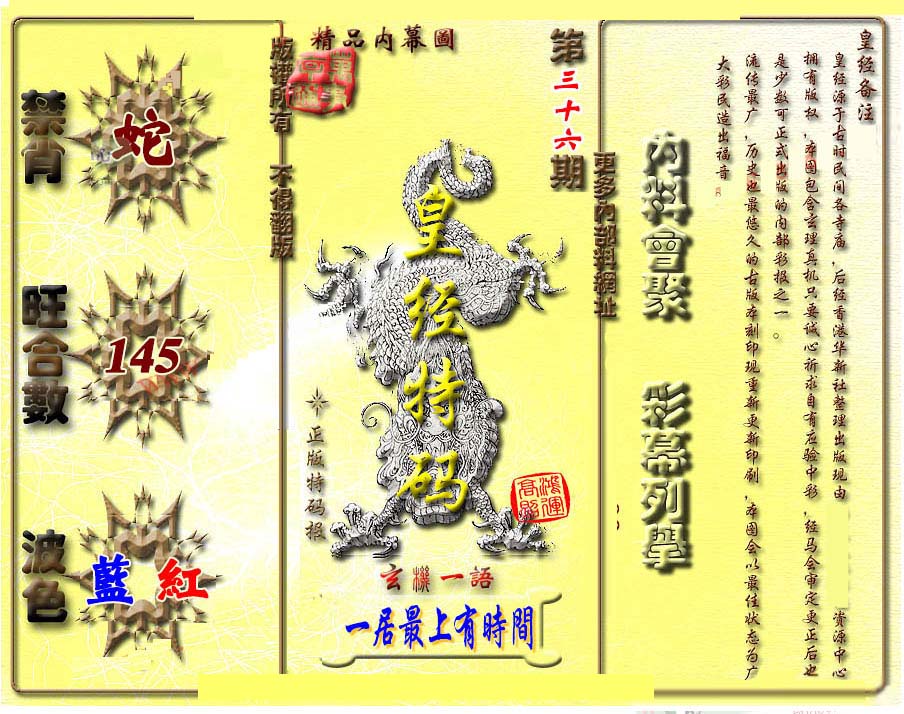 精品内幕圖
第三十六期
版權所有 不得翻版
更多內部料網址
禁肖
蛇
旺合數
145
波色
藍 紅
皇经特码
正版特码报
鴻運
高照
玄機一語
一居最上有時間
內料會聚
彩幕列舉
皇经备注
皇经源于古时民间各寺庙，后经香港华新社整理出版现由 资源中心
拥有版权，本图包含玄理真机只要诚心祈求自有应验中彩，经马会审定更正后也
是少数可正式出版的内部彩报之一。
流传最广，历史也最悠久的古版本刻印现重新更新印刷，本图会以最佳状态为广
大彩民造出福音